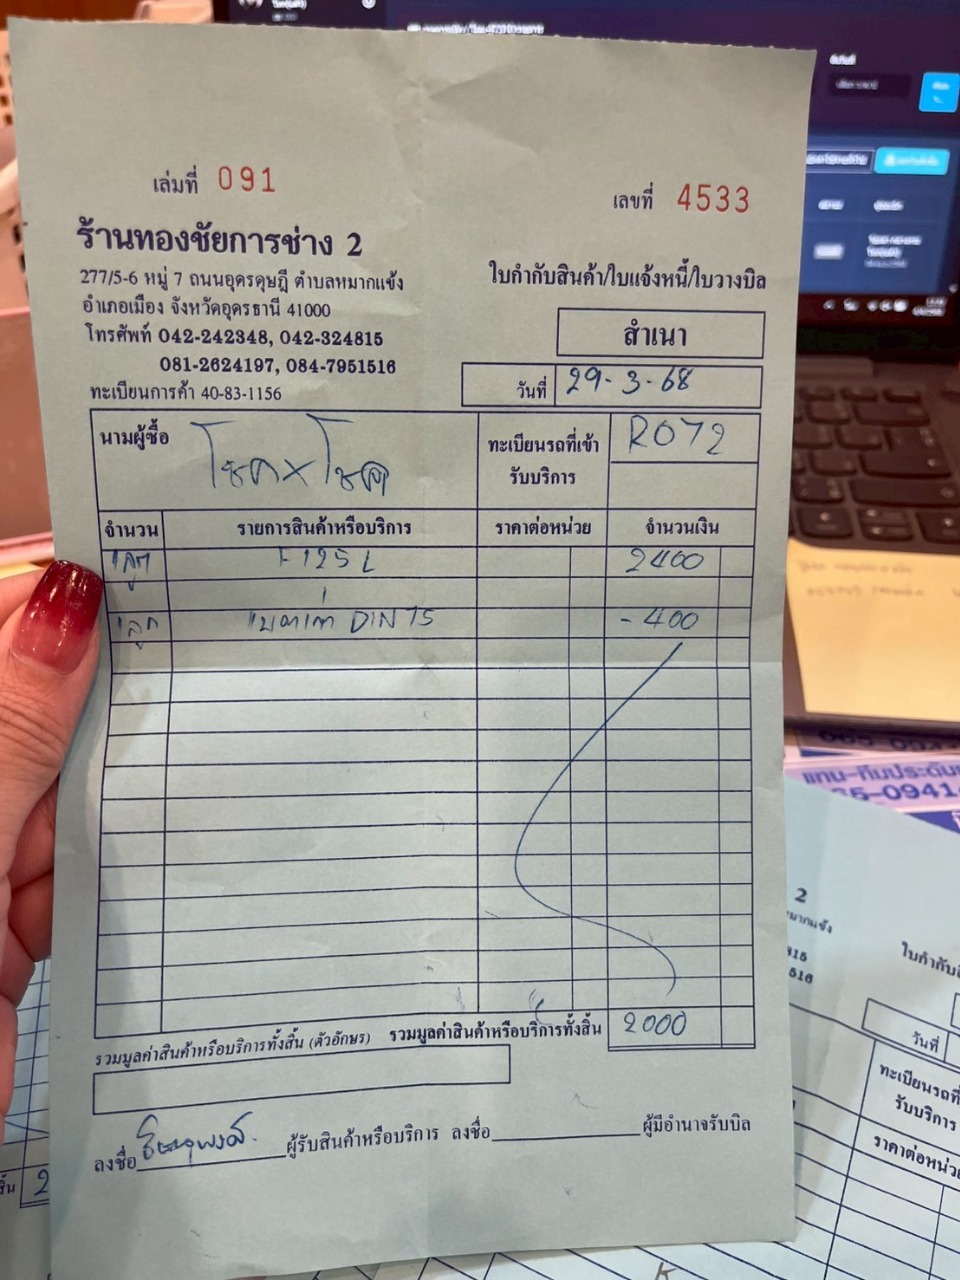 เล่มที่ 091
เลขที่ 4533
ร้านทองชัยการช่าง 2
277/5-6 หมู่ 7 ถนนอุดรดุษฎี ตำบลหมากแข้ง
อำเภอเมือง จังหวัดอุดรธานี 41000
โทรศัพท์ 042-242348, 042-324815
081-2624197, 084-7951516
ทะเบียนการค้า 40-83-1156
ใบกำกับสินค้า/ใบแจ้งหนี้/ใบวางบิล
สำเนา
วันที่ 29-3-68
นามผู้ซื้อ โชคxโชค
ทะเบียนรถที่เข้ารับบริการ R072
จำนวน รายการสินค้าหรือบริการ ราคาต่อหน่วย จำนวนเงิน
1ลูก F125L 2400
1ลูก แบตเก่า DIN 75 -400
รวมมูลค่าสินค้าหรือบริการทั้งสิ้น (ตัวอักษร) รวมมูลค่าสินค้าหรือบริการทั้งสิ้น 2000
ลงชื่อ ผู้รับสินค้าหรือบริการ ลงชื่อ ผู้มีอำนาจรับบิล
แทน-ทีมประดับ
2
หมากแข้ง
ใบกำกับ
วันที่
ทะเบียนรถที่
รับบริการ
ราคาต่อหน่วย